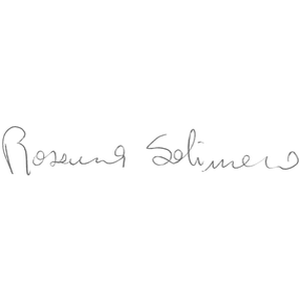 Rossana Solimeno